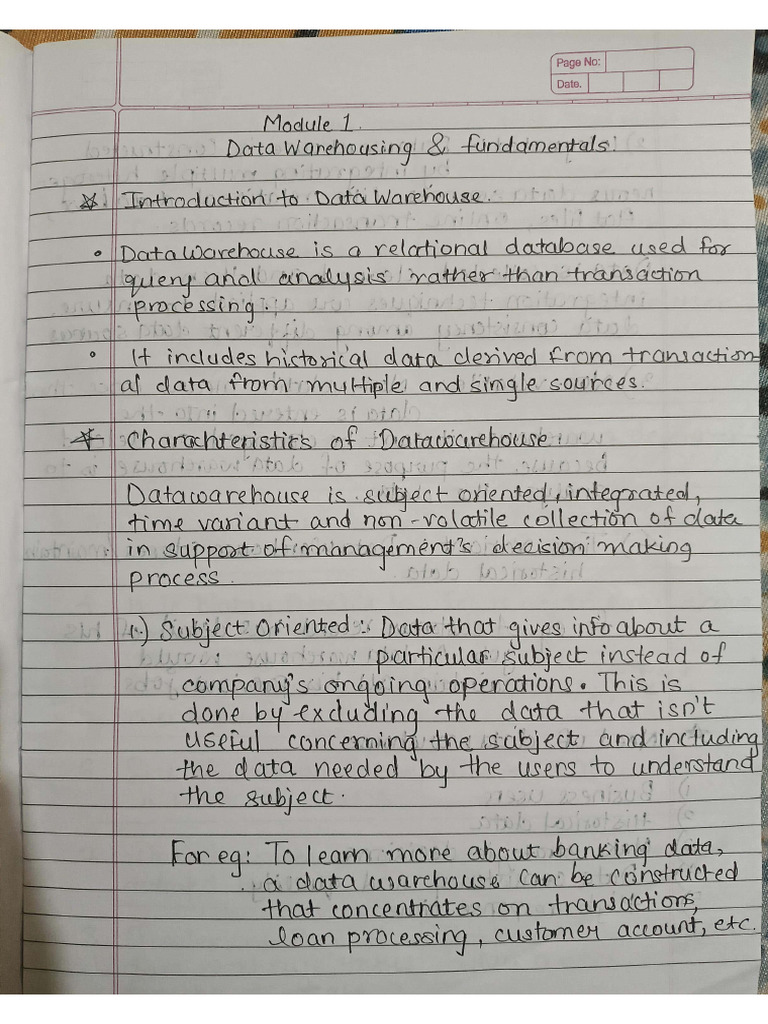 Page No:
Date.
Module 1.
Data Warehousing & fundamentals.
Introduction to Data Warehouse.
• Data Warehouse is a relational database used for
query and analysis rather than transaction
processing.
• It includes historical data derived from transaction-
al data from multiple and single sources.
Charachteristics of Datawarehouse.
Datawarehouse is subject oriented, integrated,
time variant and non-volatile collection of data
in support of management's decision making
process.
1.) Subject Oriented: Data that gives info about a
particular subject instead of
company's ongoing operations. This is
done by excluding the data that isn't
useful concerning the subject and including
the data needed by the users to understand
the subject.
For eg: To learn more about banking data,
a data warehouse can be constructed
that concentrates on transactions,
loan processing, customer account, etc.